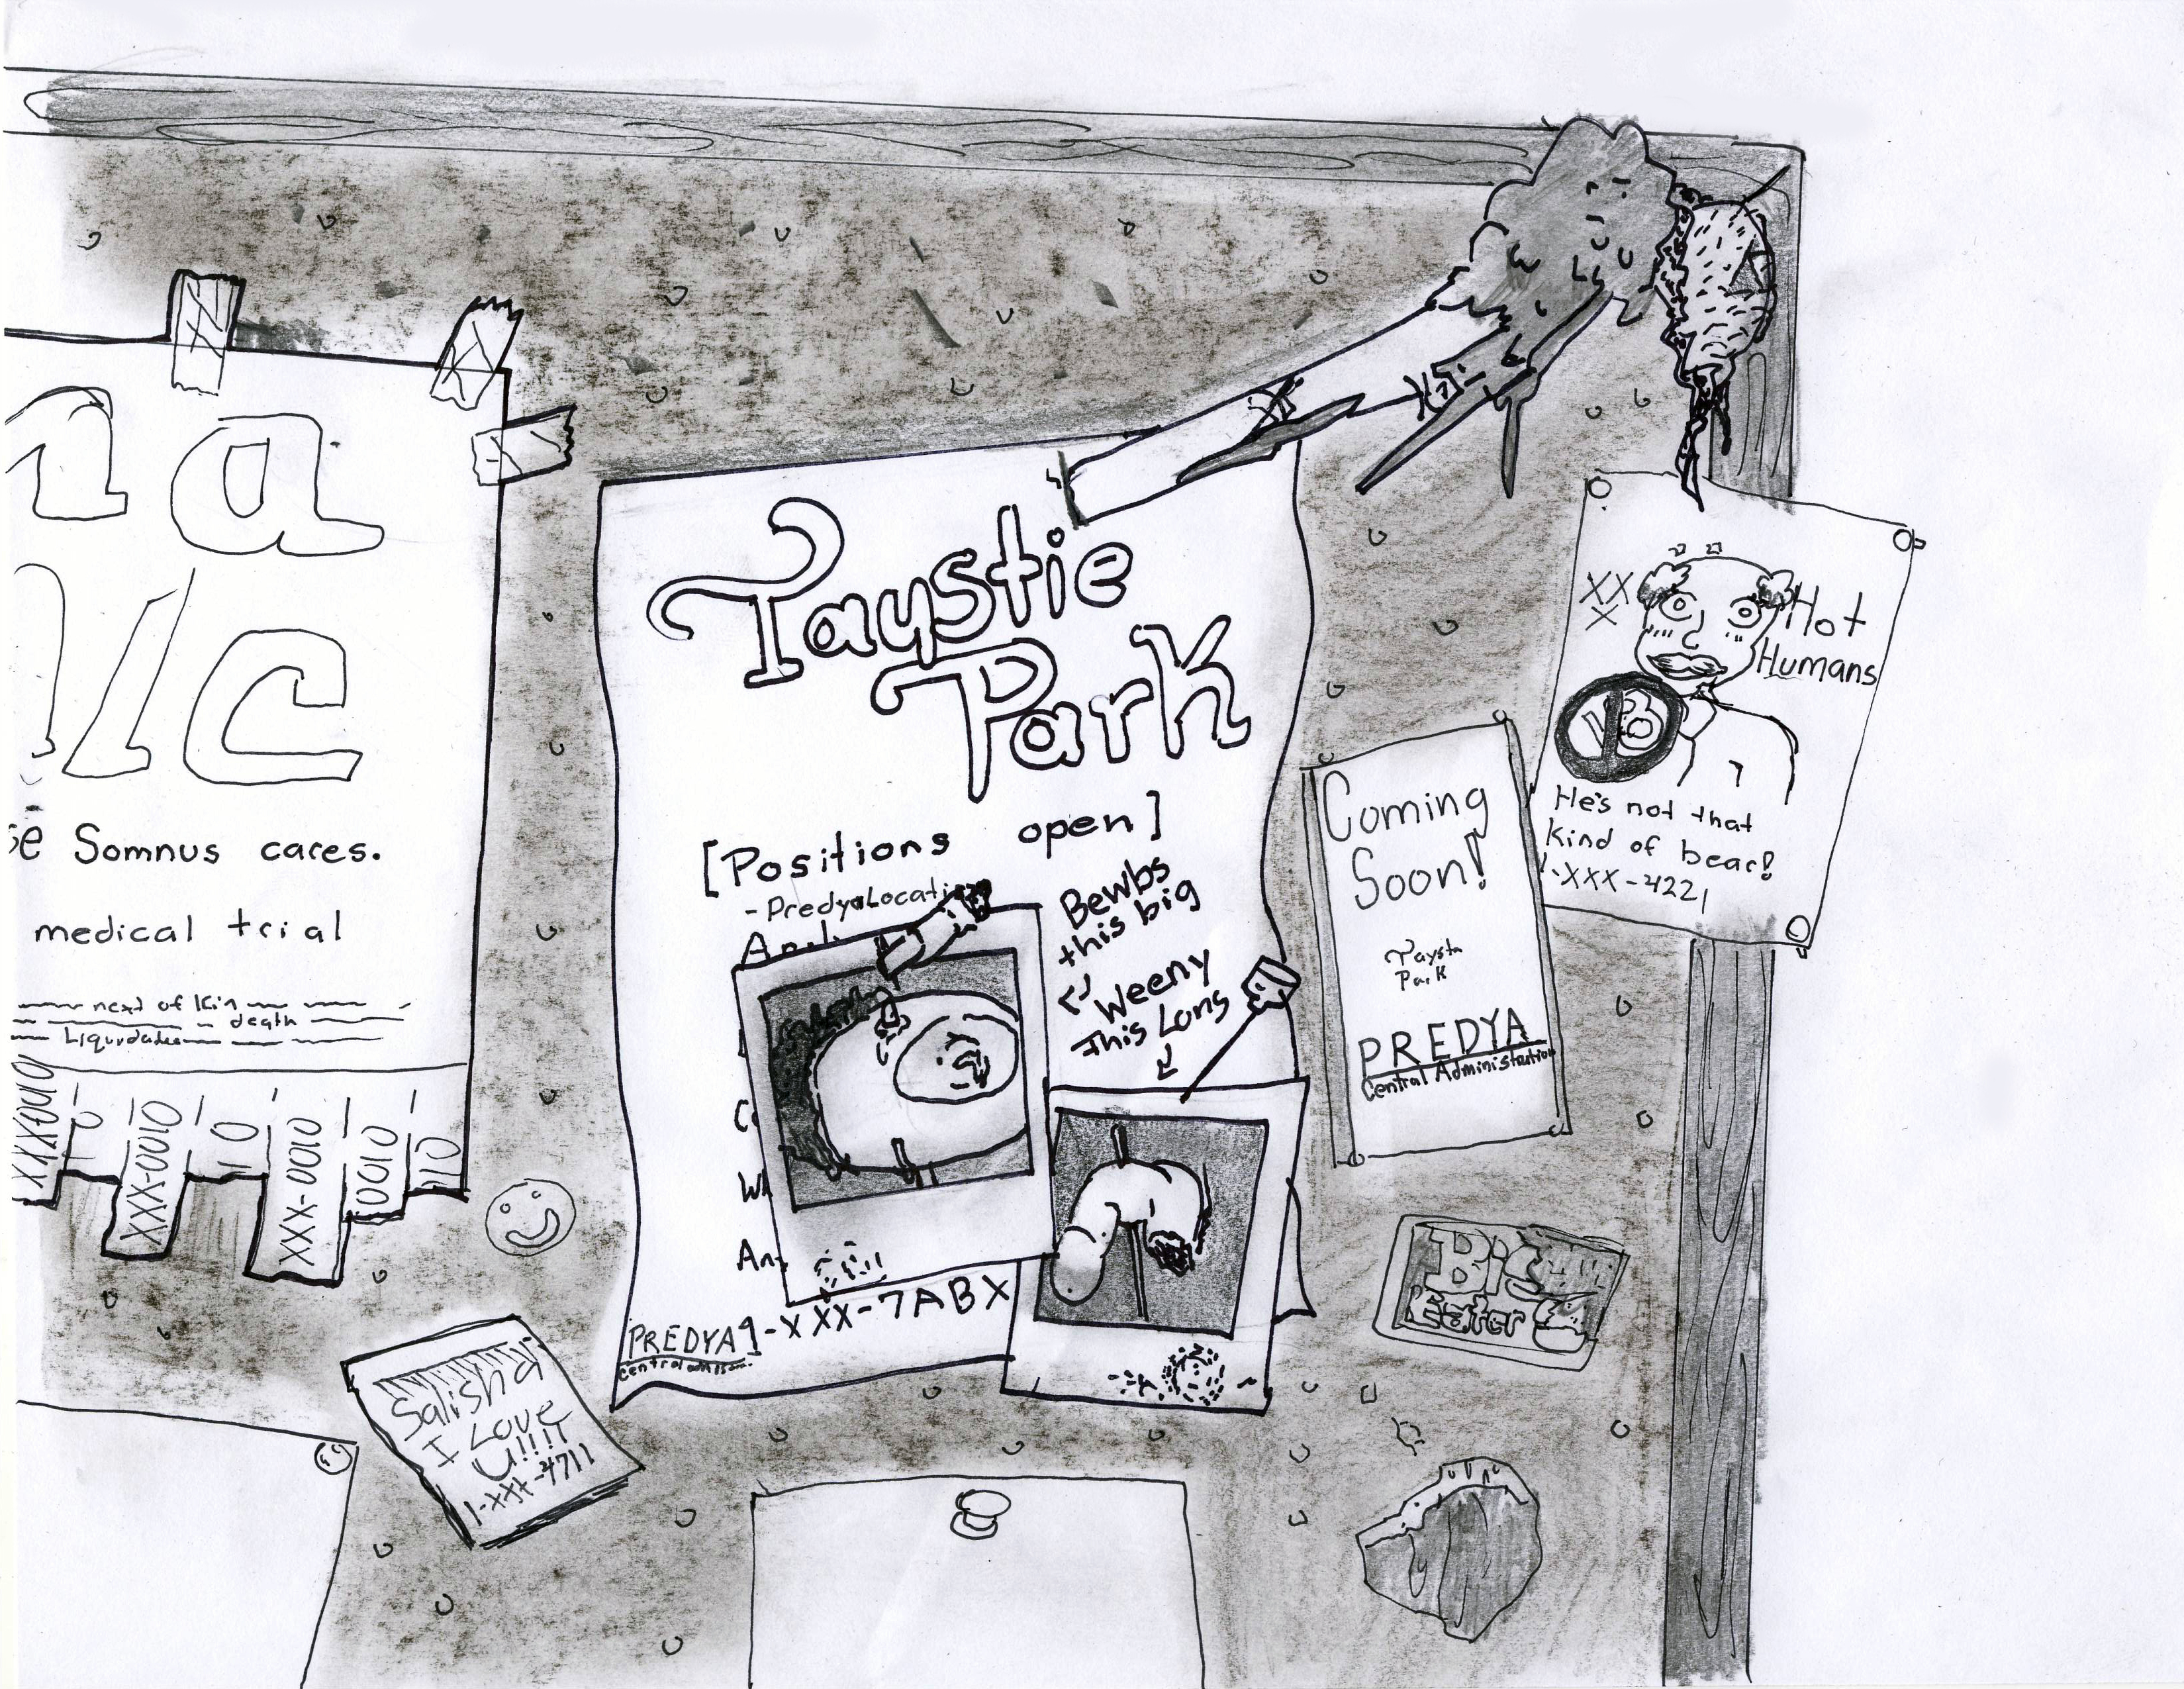 na
se Somnus cares.
medical trial
next of kin
death
XXX-0010
XXX-0010
0010
Salisha
I Love
U!!!!
1-XXX-4711
Taystie
Park
[Positions open]
-Predya Locati
Bewbs
this big
Weeny
This Long
PREDYA
1-XXX-7ABX
Coming
Soon!
Taysta
Park
PREDYA
Central Administration
XX
X
Hot
Humans
He's not that
kind of bear!
1-XXX-4221
Big
Eater